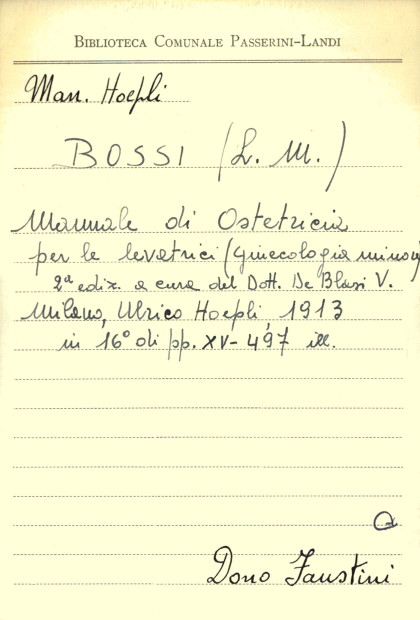 BIBLIOTECA COMUNALE PASSERINI-LANDI
Man. Hoepli
BOSSI (L. M.)
Manuale di Ostetricia
per le levatrici (Ginecologia minore)
2ª ediz. a cura del Dott. De Blasi V.
Milano, Ulrico Hoepli, 1913
in 16° di pp. XV-497 ill.
Dono Faustini